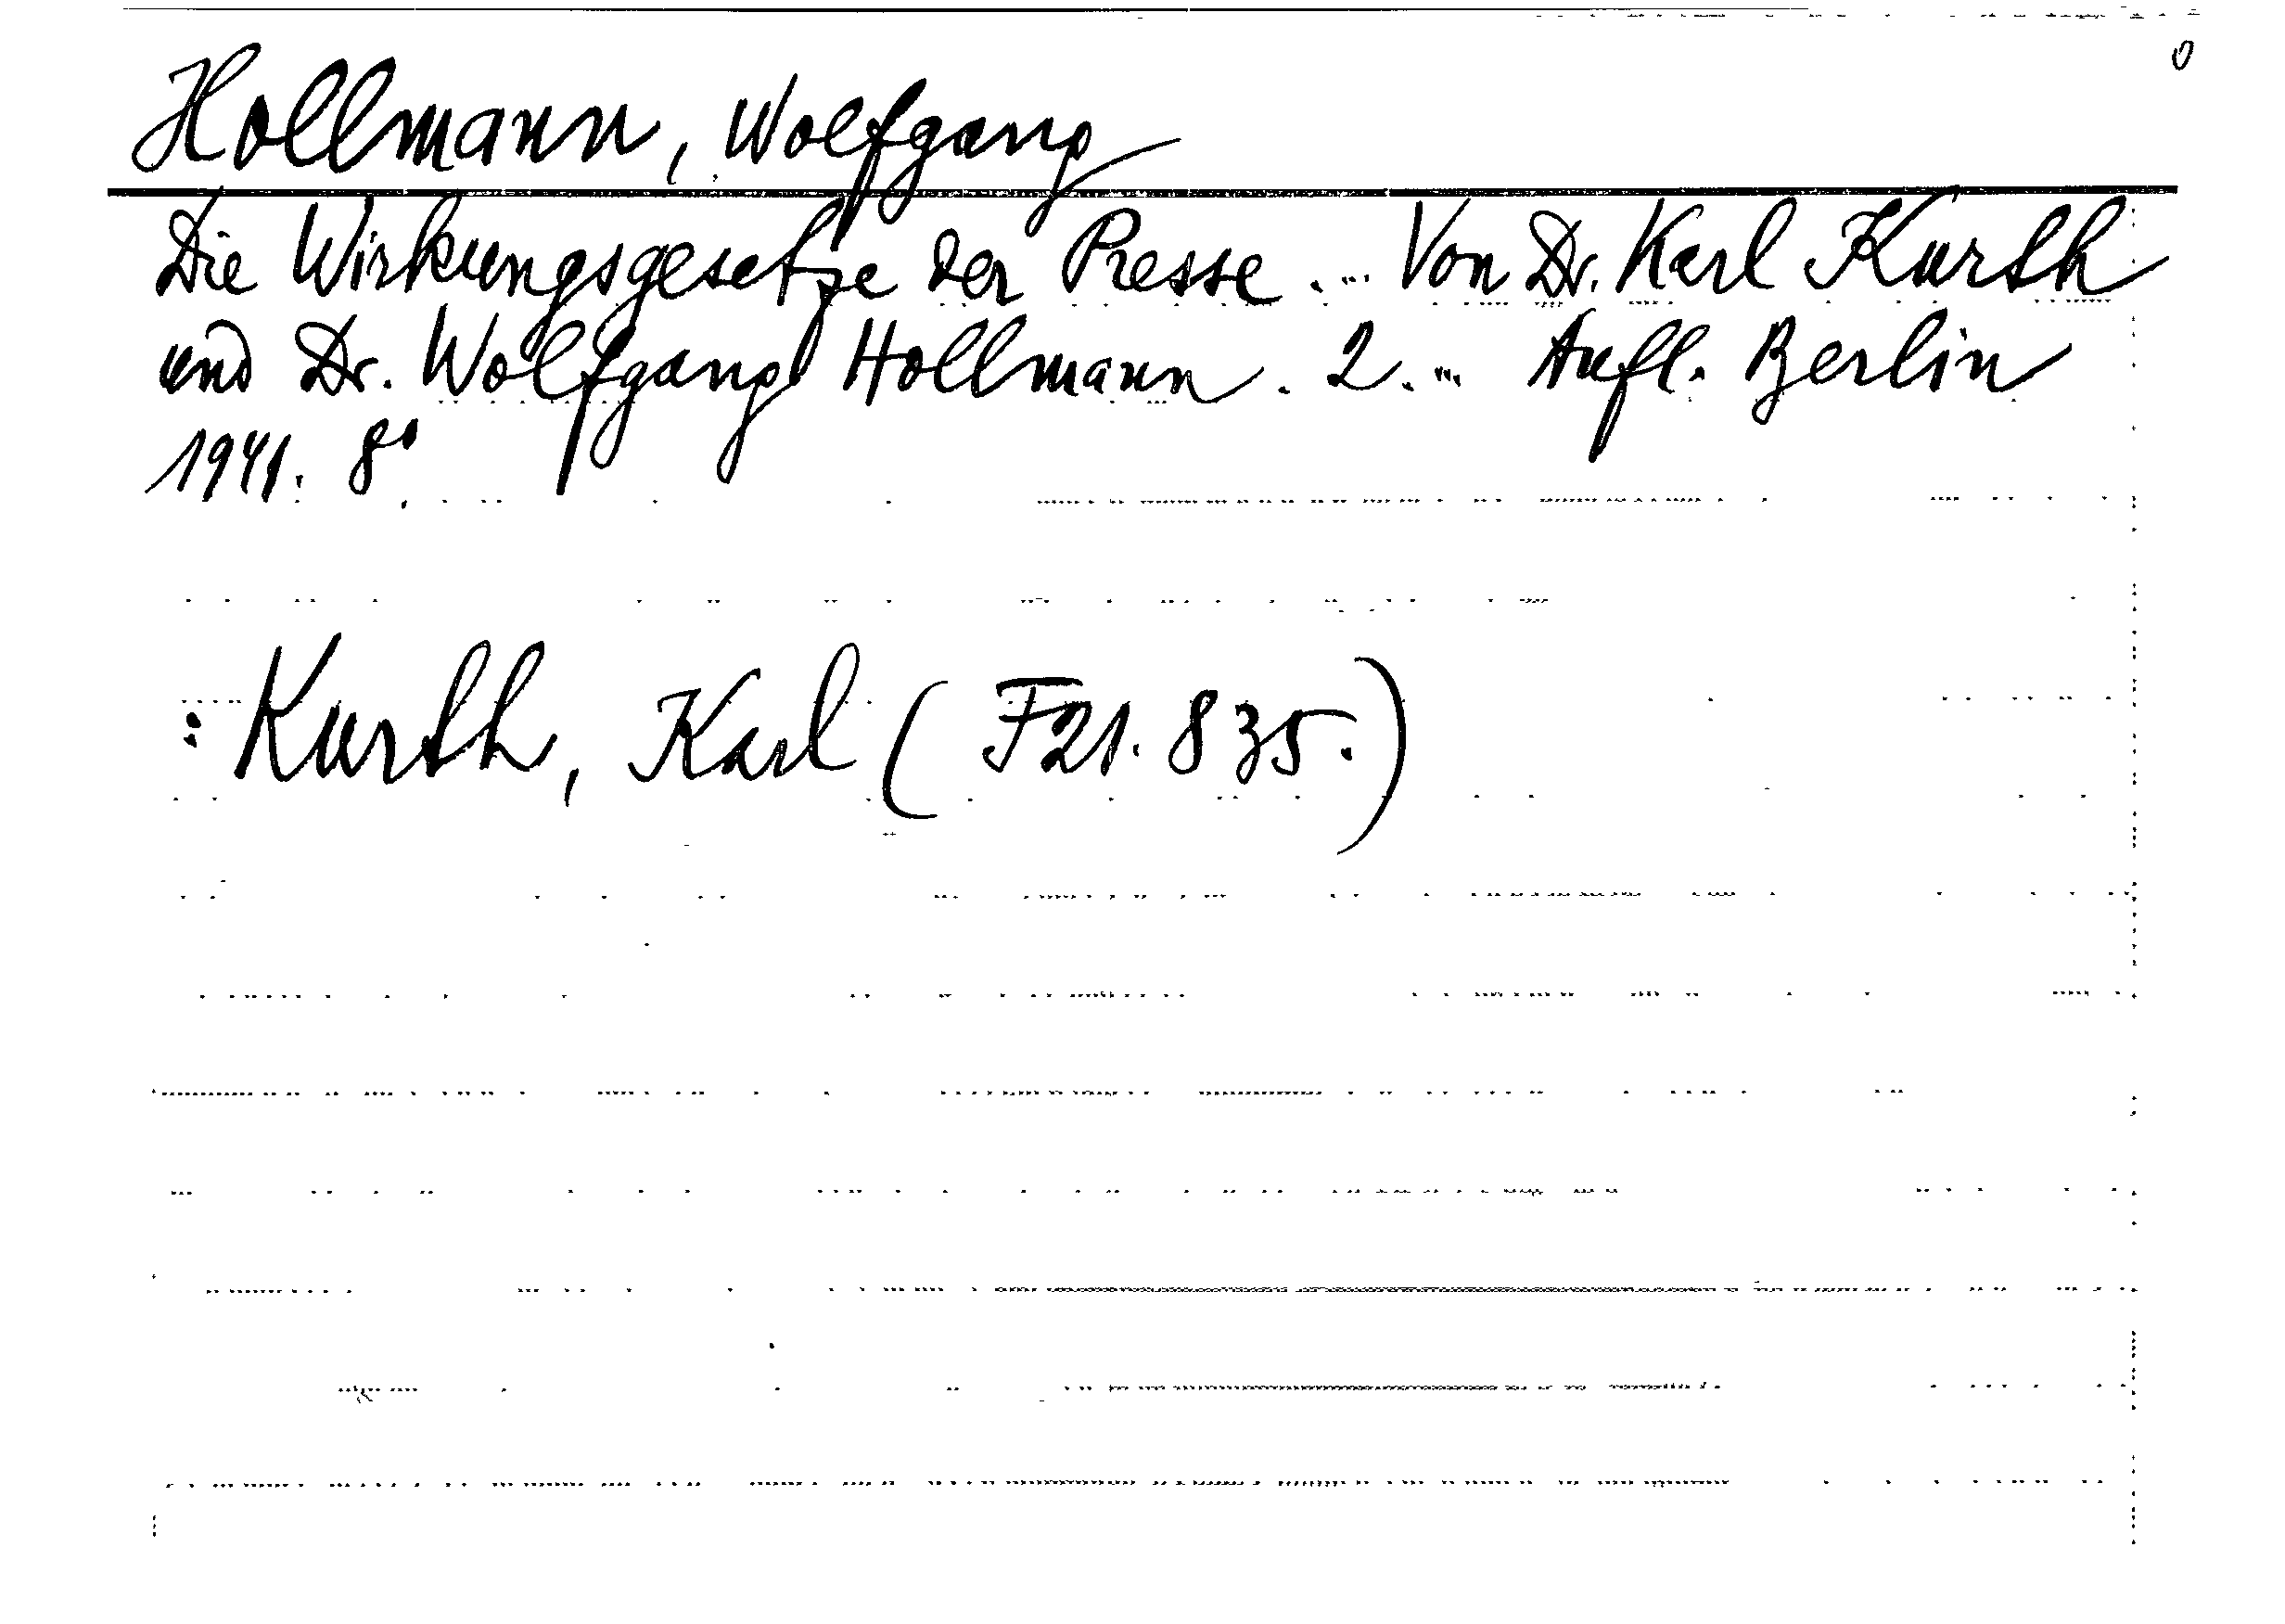 0
Hollmann, Wolfgang
Die Wirkungsgesetze der Presse. ... Von Dr. Karl Kurth
und Dr. Wolfgang Hollmann. 2. ... Aufl. Berlin
1941. 8°
: Kurth, Karl (F21. 835.)